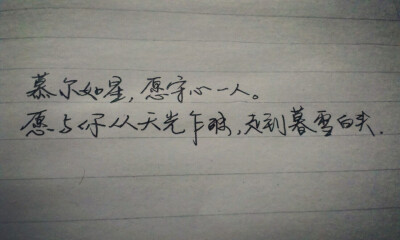 慕尔如星，愿守心一人。
愿与你从天光乍破，走到暮雪白头.